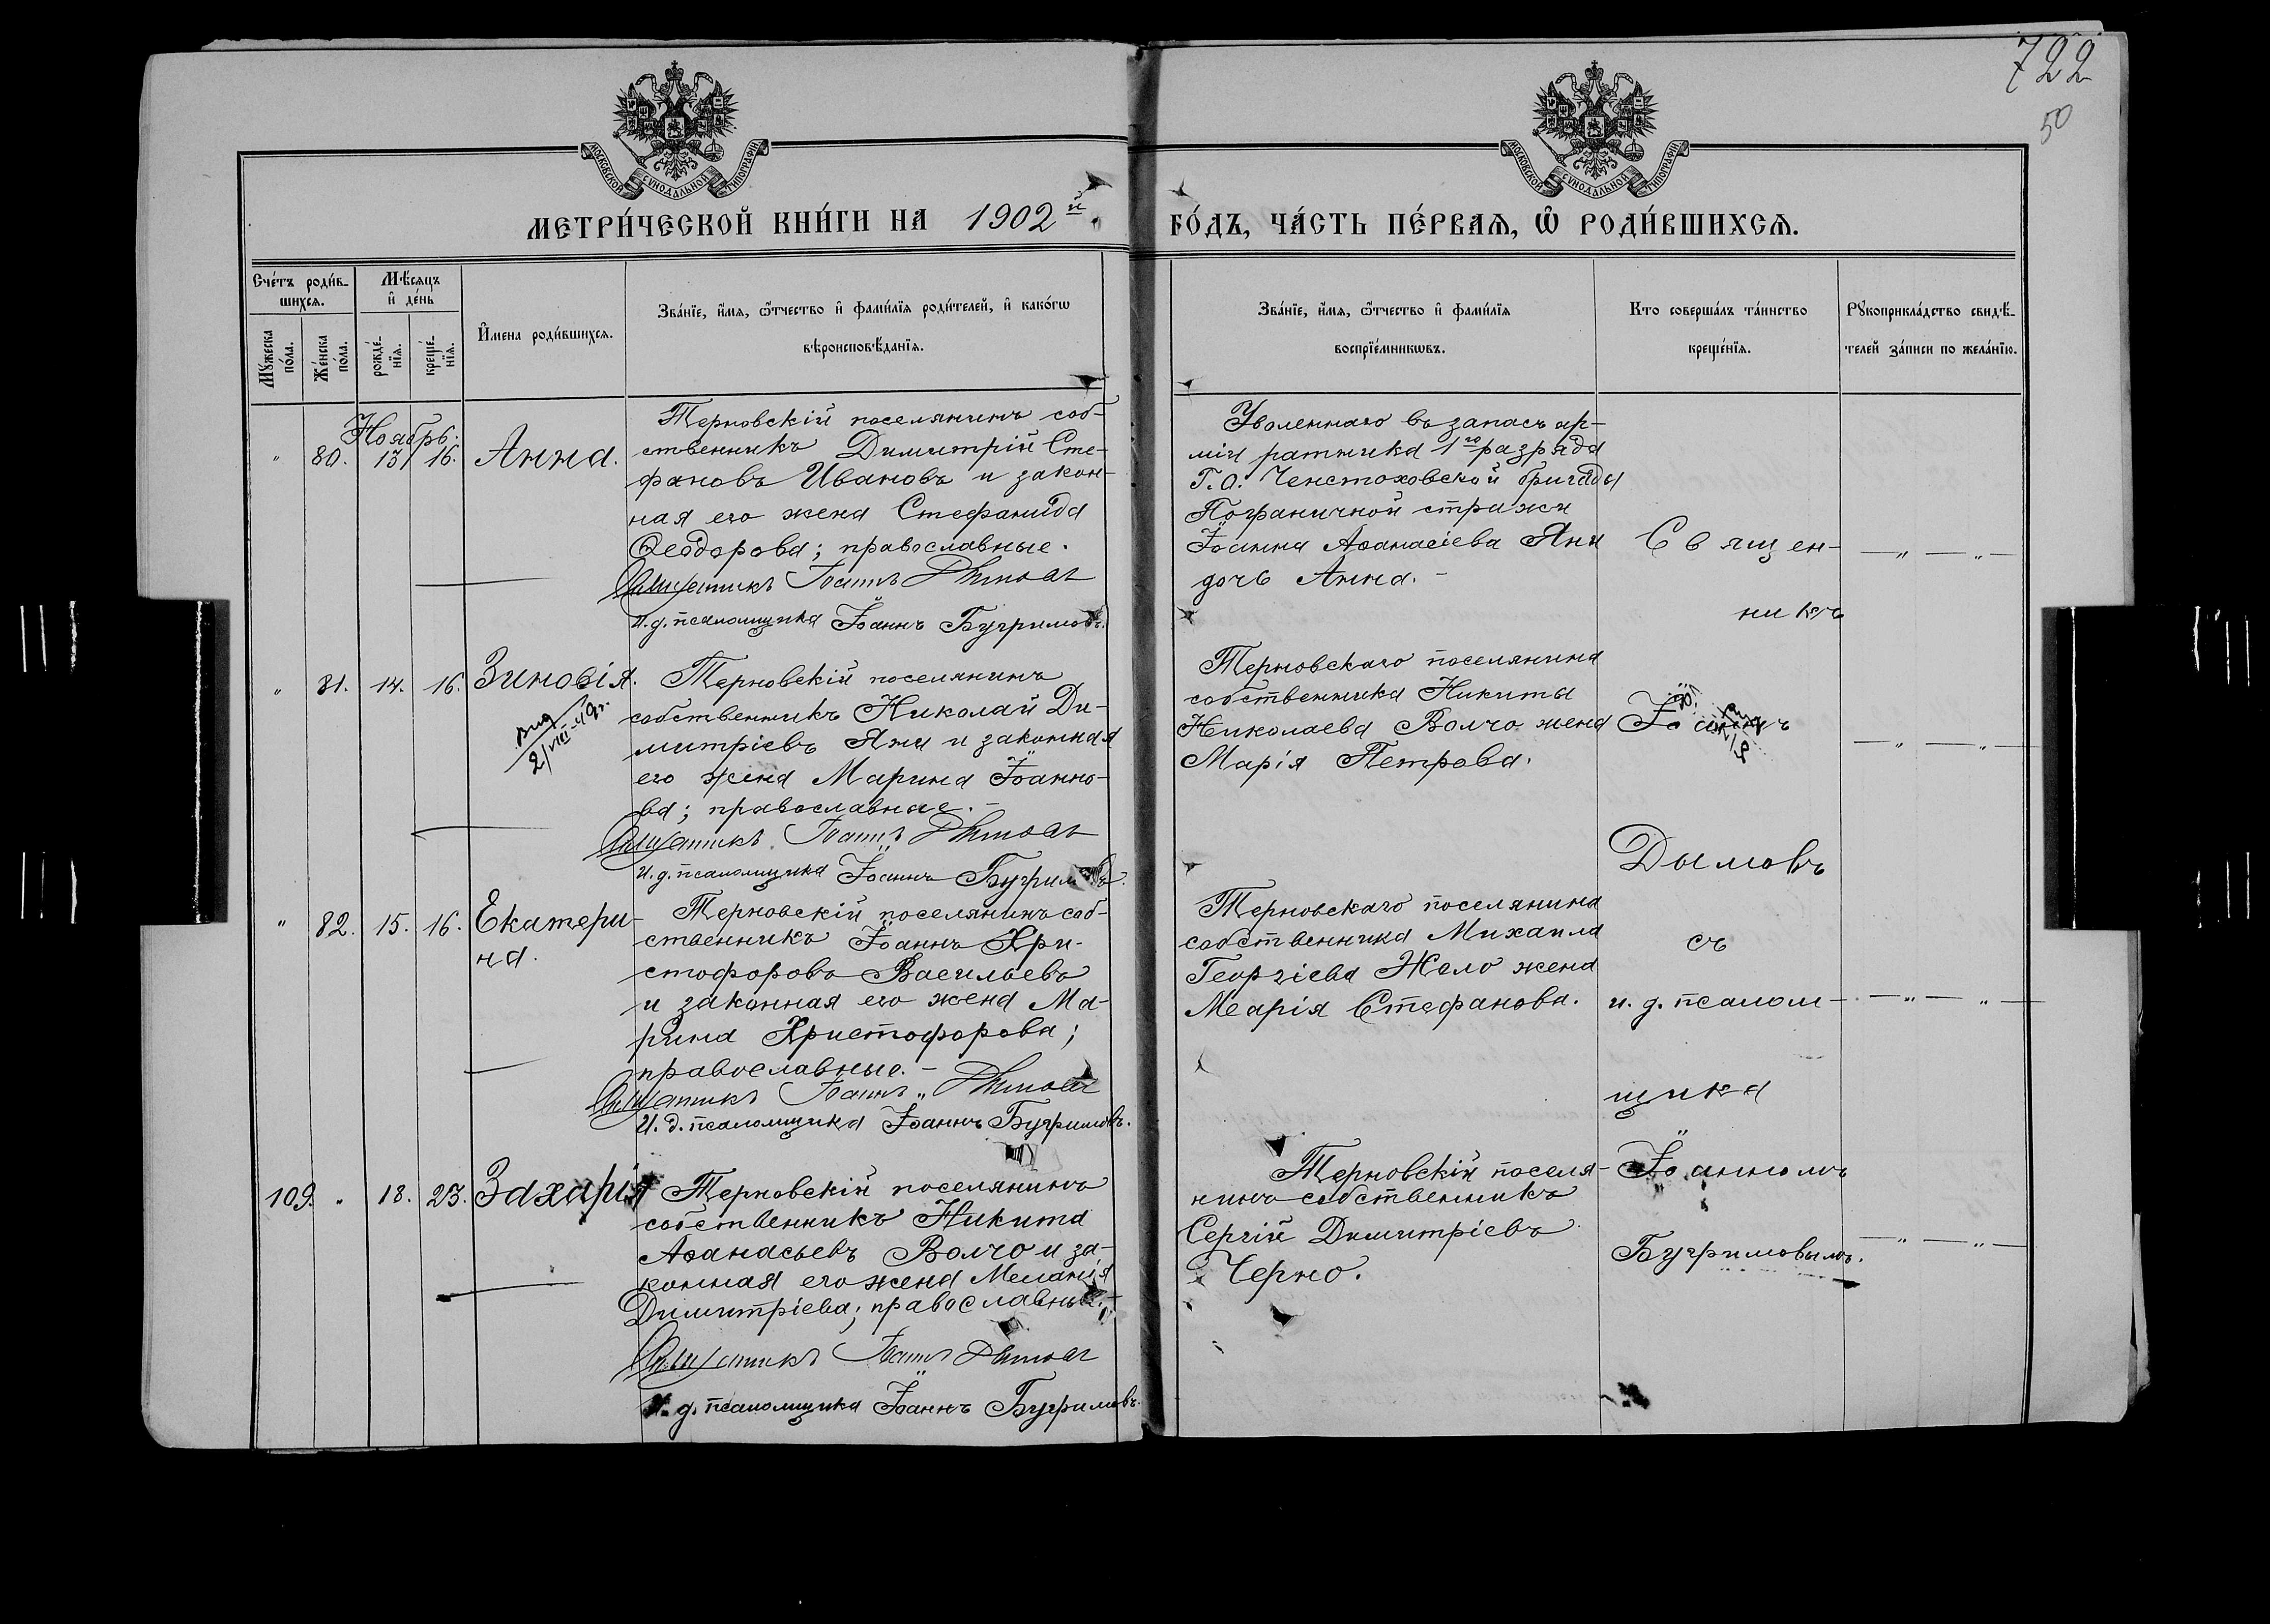 722
50
МОСКОВСКОЙ СѴНОДАЛЬНОЙ ТИПОГРАФІИ
МОСКОВСКОЙ СѴНОДАЛЬНОЙ ТИПОГРАФІИ
МЕТРИ́ЧЕСКОЙ КНИ́ГИ НА 1902й
ГО́ДЪ, ЧА́СТЬ ПЕ́РВАѦ, Ѿ РОДИ́ВШИХСѦ.
Сче́тъ роди́вшихсѧ.
Мꙋ́жеска по́ла.
Же́нска по́ла.
Мѣ́сѧцъ и҆ де́нь
рожде́нїѧ.
креще́нїѧ.
И҆мена̀ роди́вшихсѧ.
Зва́нїе, и҆́мѧ, ѻ҆́тчество и҆ фами́лїѧ роди́телей, и҆ како́гѡ
вѣроисповѣ́данїѧ.
Зва́нїе, и҆́мѧ, ѻ҆́тчество и҆ фами́лїѧ
воспрїе́мникѡвъ.
Кто̀ соверша́лъ та́инство
креще́нїѧ.
Рꙋкоприкла́дство свидѣ́-
телей за́писи по жела́нїю.
Ноябрь.
" 80. 13 16. Анна.
Терновскій поселянинъ соб-
ственникъ Димитрій Сте-
фановъ Ивановъ и закон-
ная его жена Стефанида
Ѳеодорова; православные.
Священникъ Іоаннъ Дымовъ
И. д. псаломщика Іоаннъ Бугримовъ.
Уволеннаго въ запасъ ар-
міи ратника 1го разряда
Г. О. Ченстоховской бригады
Пограничной стражи
Іоанна Аѳанасіева Яни
дочь Анна.-
Священ-
никъ
— " — " —
" 81. 14. 16. Зиновія.
2/VIII-49г.
Терновскій поселянинъ
собственникъ Николай Ди-
митріевъ Яни и законная
его жена Марина Іоанно-
ва; православные.-
Священникъ Іоаннъ Дымовъ
И. д. псаломщика Іоаннъ Бугримовъ.
Терновскаго поселянина
собственника Никиты
Николаева Волчо жена
Марія Петрова.
Іоаннъ
Дымовъ
— " — " —
" 82. 15. 16. Екатери-
на.
Терновскій поселянинъ соб-
ственникъ Іоаннъ Хри-
стофоровъ Васильевъ
и законная его жена Ма-
рина Христофорова;
православные.-
Священникъ Іоаннъ Дымовъ
И. д. псаломщика Іоаннъ Бугримовъ.
Терновскаго поселянина
собственника Михаила
Георгіева Жело жена
Марія Стефанова.
съ
и. д. псалом-
щика
— " — " —
109. " 18. 23. Захарія
Терновскій поселянинъ
собственникъ Никита
Аѳанасьевъ Волчо и за-
конная его жена Меланія
Димитріева; православные.-
Священникъ Іоаннъ Дымовъ
И. д. псаломщика Іоаннъ Бугримовъ.
Терновскій поселя-
нинъ собственникъ
Сергій Димитріевъ
Черно.
Іоанномъ
Бугримовымъ.
— " — " —